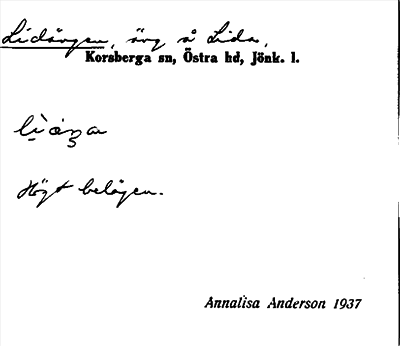 Lidängen, äng å Lida,
Korsberga sn, Östra hd, Jönk. l.
Högt belägen.
Annalisa Anderson 1937